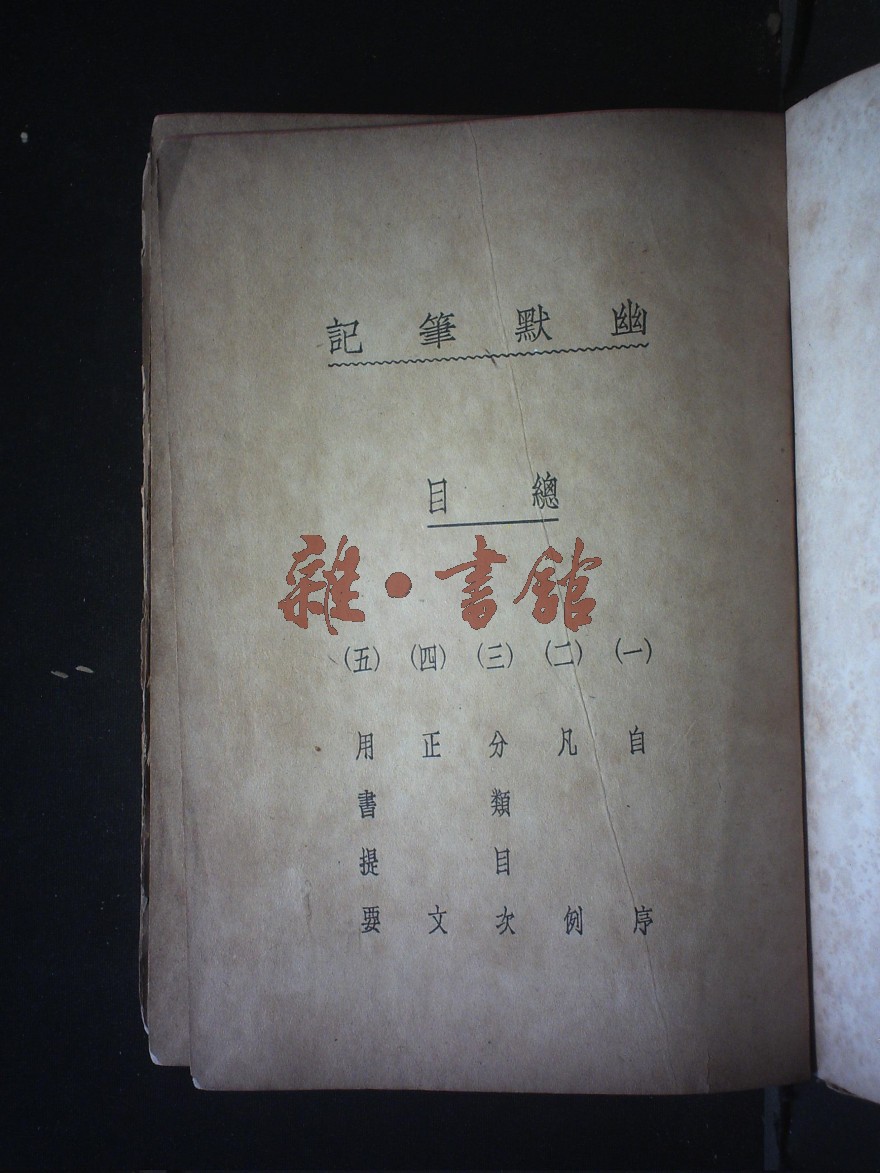 幽默筆記
總目
雜·書館
(一)自序
(二)凡例
(三)分類目次
(四)正文
(五)用書提要